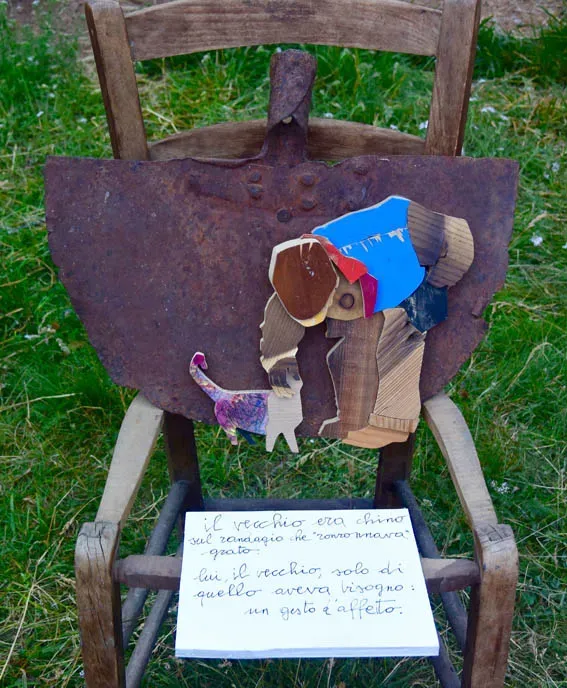 il vecchio era chino
sul randagio che "ronronnava",
grato.
lui, il vecchio, solo di
quello aveva bisogno:
un gesto d'affetto.